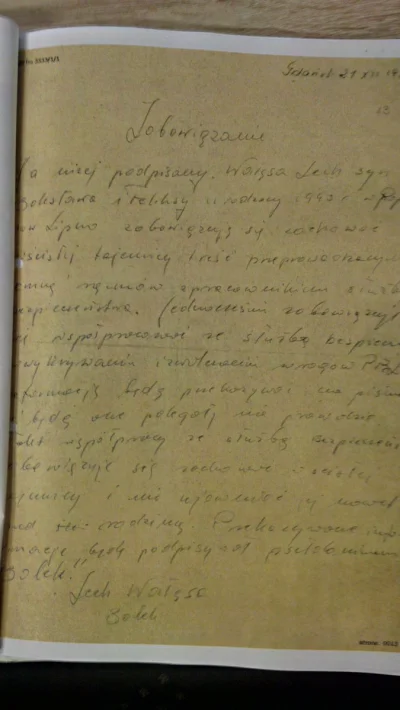 Gdańsk 21 XII 19
13
Zobowiązanie
Ja niżej podpisany Wałęsa Lech syn
Bolesława i Feliksy urodzony 1943 r w
Lipno zobowiązuję się zachować
ścisłej tajemnicy treść przeprowadzonych
mną rozmów z pracownikiem służby
bezpieczeństwa. Jednocześnie zobowiązuję
współpracować ze służbą bezpiecz
wykrywaniu i zwalczaniu wrogów
formacje będę przekazywał na piśmie
i będą one polegały na prawdzie
współpracy ze służbą bezpieczeń
zobowiązuje się zachować w ścisłej
tajemnicy i nie ujawniać jej nawet
rodziną. Przekazywane info
macje będę podpisywał pseudonimem
Bolek.
Lech Wałęsa
Bolek